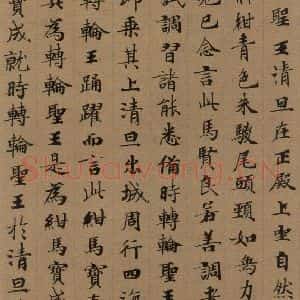 聖王清旦在正殿上坐自然
紺青色朱駿尾頭頸如象力
見已念言此馬賢良若善調者
試調習諸能悉備時轉輪聖王
即乘其上清旦出城周行四海
轉輪王踊躍而言此紺馬寶
真為轉輪聖王是為紺馬寶成
寶成就時轉輪聖王於清旦
Shufawang.CN